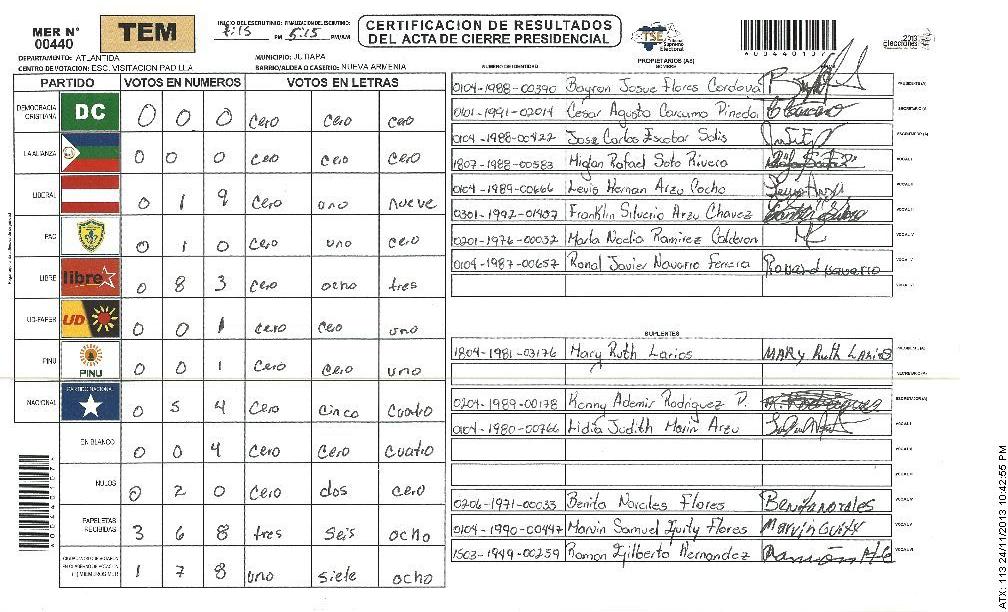 MER N° 00440
TEM
INICIO DEL ESCRUTINIO: FINALIZACION DEL ESCRUTINIO:
7:15 PM 5:15 PM/AM
CERTIFICACION DE RESULTADOS
DEL ACTA DE CIERRE PRESIDENCIAL
TSE
Tribunal Supremo Electoral
2013
Elecciones
A00440107
DEPARTAMENTO: ATLANTIDA
MUNICIPIO: JUTIAPA
CENTRO DE VOTACION: ESC. VISITACION PADILLA
BARRIO/ALDEA O CASERIO: NUEVA ARMENIA
PARTIDO VOTOS EN NUMEROS VOTOS EN LETRAS
DEMOCRACIA CRISTIANA DC 0 0 0 cero cero cero
LA ALIANZA 0 0 0 cero cero cero
LIBERAL 0 1 9 cero uno nueve
PAC 0 1 0 cero uno cero
LIBRE libre 0 8 3 cero ocho tres
UD-FAPER UD 0 0 1 cero cero uno
PINU PINU 0 0 1 cero cero uno
NACIONAL PARTIDO NACIONAL 0 5 4 cero cinco cuatro
EN BLANCO 0 0 4 cero cero cuatro
NULOS 0 2 0 cero dos cero
PAPELETAS RECIBIDAS 3 6 8 tres seis ocho
1 7 8 uno siete ocho
NUMERO DE IDENTIDAD
PROPIETARIOS (AS)
NOMBRE
0104-1988-00390 Bayron Josue Flores Cordova PRESIDENTE(A)
0101-1991-02014 Cesar Agusto Carcamo Pineda SECRETARIO (A)
0104-1988-00422 Jose Carlos Escobar Solis ESCRUTADOR (A)
1807-1988-00583 Miglan Rafael Soto Rivera VOCAL I
0104-1989-00666 Levis Hernan Arzu Cacho VOCAL II
0301-1992-01407 Franklin Silverio Arzu Chavez VOCAL III
0201-1976-00032 Marta Noelia Ramirez Calderon VOCAL IV
0104-1987-00657 Ronal Javier Navarro Ferrera VOCAL V
SUPLENTES
1804-1981-03176 Mary Ruth Larios MARY Ruth LARIOS PRESIDENTE(A)
SECRETARIO (A)
0204-1989-00178 Kenny Ademir Rodriguez P. ESCRUTADOR(A)
0104-1980-00766 Lidia Judith Marin Arzu VOCAL I
0206-1971-00033 Benita Norales Flores Benita norales
0104-1990-00447 Marvin Samuel Guity Flores Marvin Guity
1503-1949-00259 Ramon Gilberto Hernandez
ATX: 113 24/11/2013 10:42:55 PM